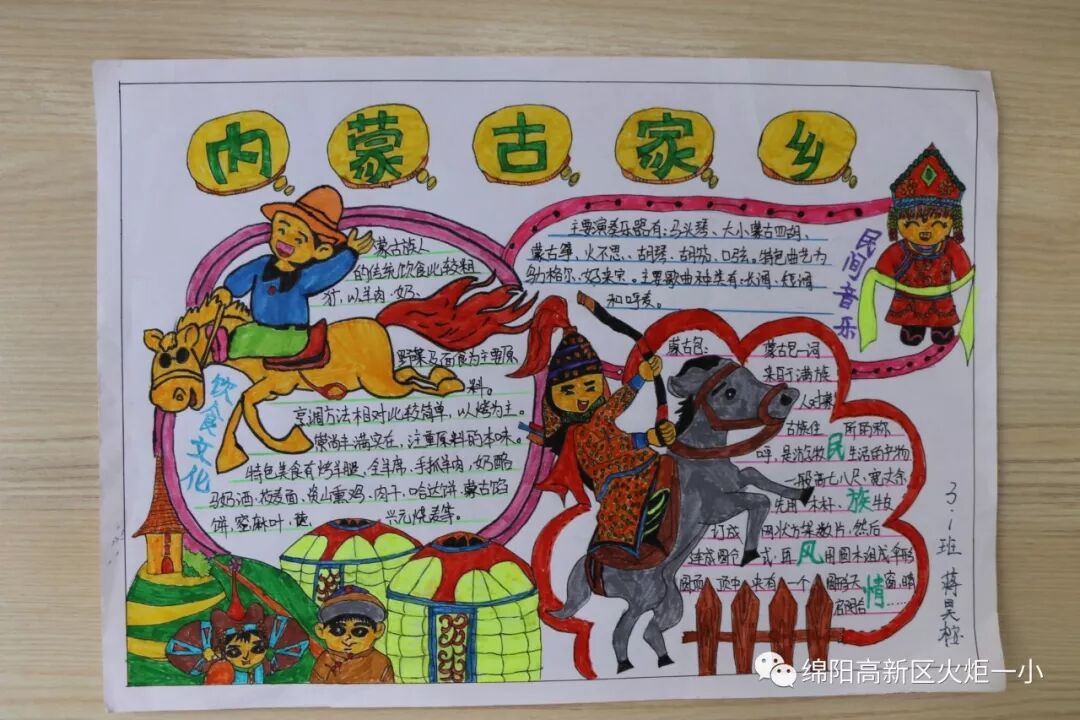 内蒙古家乡
蒙古族人
的传统饮食比较粗
犷,以羊肉、奶、
野菜及面食为主要原
料。
烹调方法相对比较简单,以烤为主。
崇尚丰满实在,注重原料的本味。
特色美食有烤羊腿、全羊席、手抓羊肉、奶酪
马奶酒、莜麦面、资山熏鸡、肉干、哈达饼、蒙古馅
饼、蜜麻叶、
兴元烧麦等。
饮食文化
主要演奏乐器有:马头琴、大小蒙古四胡、
蒙古筝、火不思、胡琴、胡笳、口弦。特色曲艺为
胡格尔、好来宝。主要歌曲种类有:长调、短调
和呼麦。
民间音乐
蒙古包:
蒙古包一词
来自于满族
人对蒙
古族住 所的称
呼,是游牧 生活的产物
一般高七八尺,宽丈余,
先用 木杆、 牛皮
订成 网状方架数片,然后
连成圆仓 式,再 用圆木组成伞形
圆顶,顶中 央有一个 圆形天 窗,晴
启阴合……
民族风情
3.1班 蒋昊
绵阳高新区火炬一小